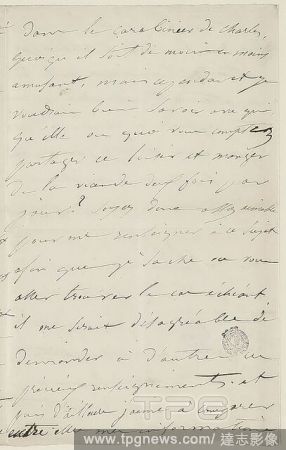 dans le carabinier de Charles,
quoiqu'il soit de moins en moins
amusant, mais cependant je
voudrais bien savoir avec qui
qu'elle ou quoi vous comptez
partager ce loisir et manger
de la viande deux fois par
jour? Soyez donc assez aimable
pour me renseigner à ce sujet
afin que je sache où vous
aller trouver le cas échéant
il me serait désagréable de
demander à d'autres un
précieux renseignement. et
puis d'ailleurs j'aime à
entre elles mes informations
TPG
www.tpgnews.com / 達志影像